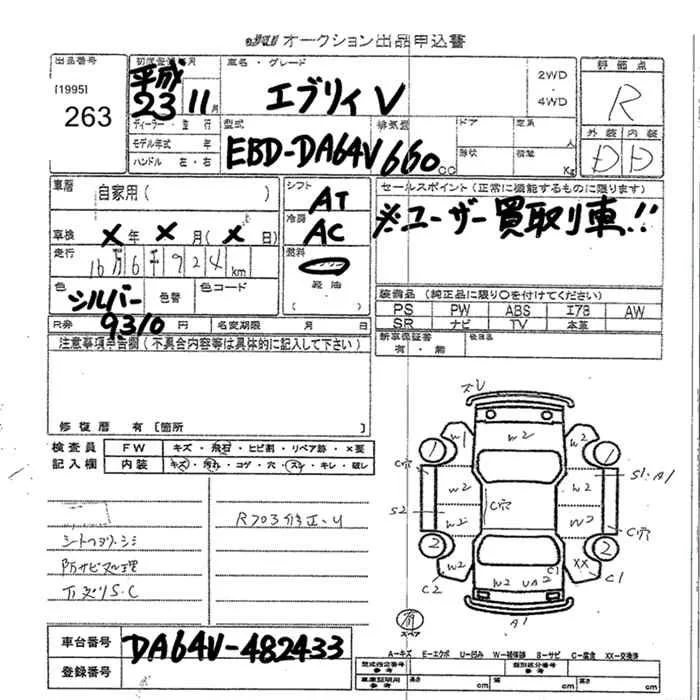 オークション出品申込書
出品番号
[1995]
263
初度登録年月
平成
23 11月
車名・グレード
エブリィ V
2WD
4WD
評価点
R
外装 内装
D D
ディーラー・並行
モデル年式 年
ハンドル 左・右
型式
EBD-DA64V
排気量
660 cc
ドア
形状
定員
人
積載
Kg
車歴
自家用( )
車検 × 年 × 月( × 日)
走行
16万6千924 km
色
シルバー
色替
色コード
R券 9310 円
名変期限 月 日
シフト
AT
冷房
AC
燃料
軽油
セールスポイント(正常に機能するものに限ります)
※ユーザー買取り車!!
装備品(純正品に限り○を付けてください)
PS PW ABS エアB AW
SR ナビ TV 本革
新車保証書
有・無
注意事項申告欄(不具合内容等は具体的に記入して下さい)
修復歴 有[箇所
検査員
記入欄
FW キズ・飛石・ヒビ割・リペア跡・×要
内装 キズ・汚れ・コゲ・穴・スレ・キレ・破レ
防サビ処理
下廻りS・C
ズレ
W2
W1
W2
1
1
C穴
W2
W2
S1・A1
C穴
S2
W2
W2
C穴
2
2
C1
XX
C2
W2
UA2
C1
A1
有
スペア
A-キズ E-エクボ U-凹み W-補修跡 S-サビ C-腐食 XX-交換済
車台番号 DA64V-482433
登録番号
型式指定番号
参考
類別区分番号
参考
車庫証明用
参考
長さ cm
幅 cm
高さ cm